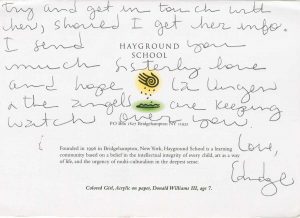 try and get in touch with
her, should I get her info.
I send you
HAYGROUND
SCHOOL
much sisterly love
and hope
& the angels are keeping
PO Box 1827 Bridgehampton NY 11932
watch over you
Love,
Founded in 1996 in Bridgehampton, New York, Hayground School is a learning
community based on a belief in the intellectual integrity of every child, art as a way
of life, and the urgency of multi-culturalism in the deepest sense.
Colored Girl, Acrylic on paper, Donald Williams III, age 7.